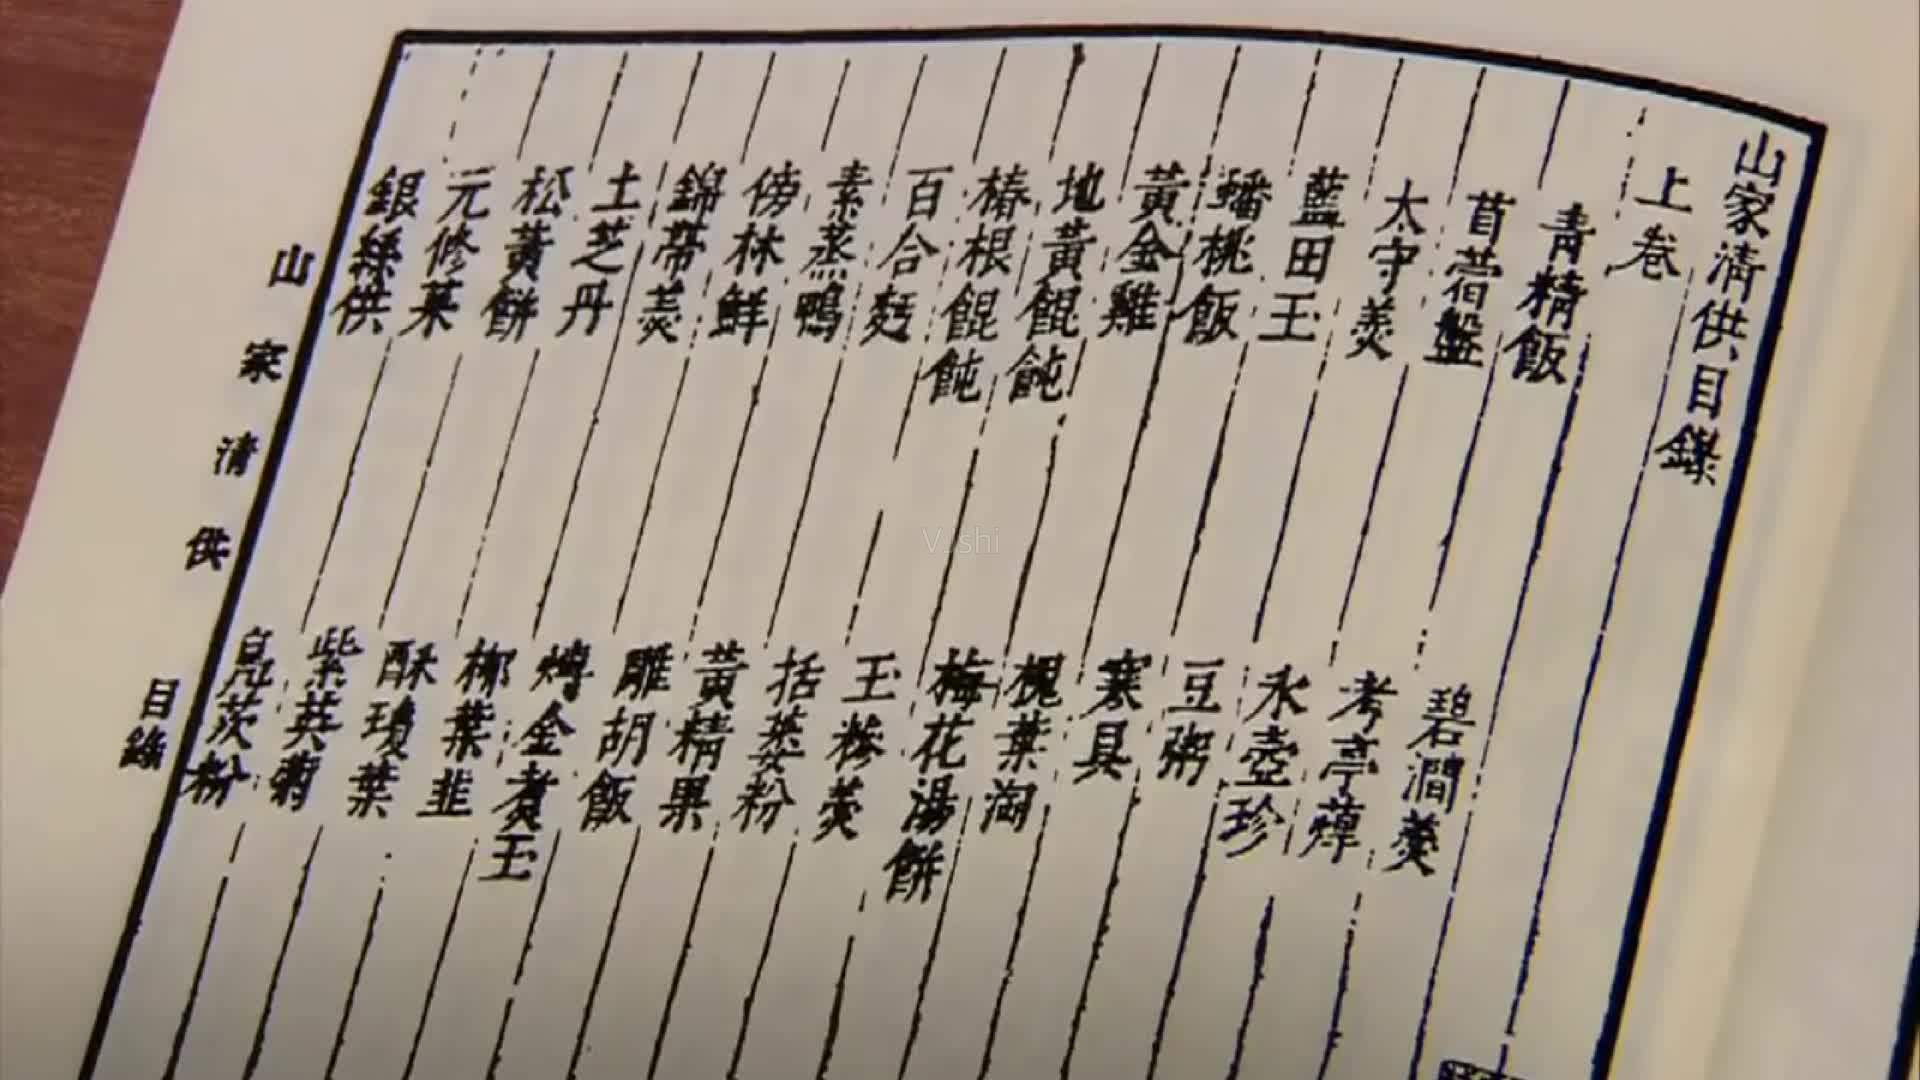 山家清供目錄
上卷
青精飯
碧澗羹
苜蓿盤
考亭蕈
太守羹
冰壺珍
藍田玉
豆粥
蟠桃飯
寒具
黃金雞
槐葉淘
地黃餛飩
梅花湯餅
椿根餛飩
玉糝羹
百合麪
括蔞粉
素蒸鴨
黃精果
傍林鮮
雕胡飯
錦帶羹
煿金煮玉
土芝丹
柳葉韭
松黃餅
酥瓊葉
元修菜
紫英菊
銀絲供
鳧茨粉
山家清供
目錄